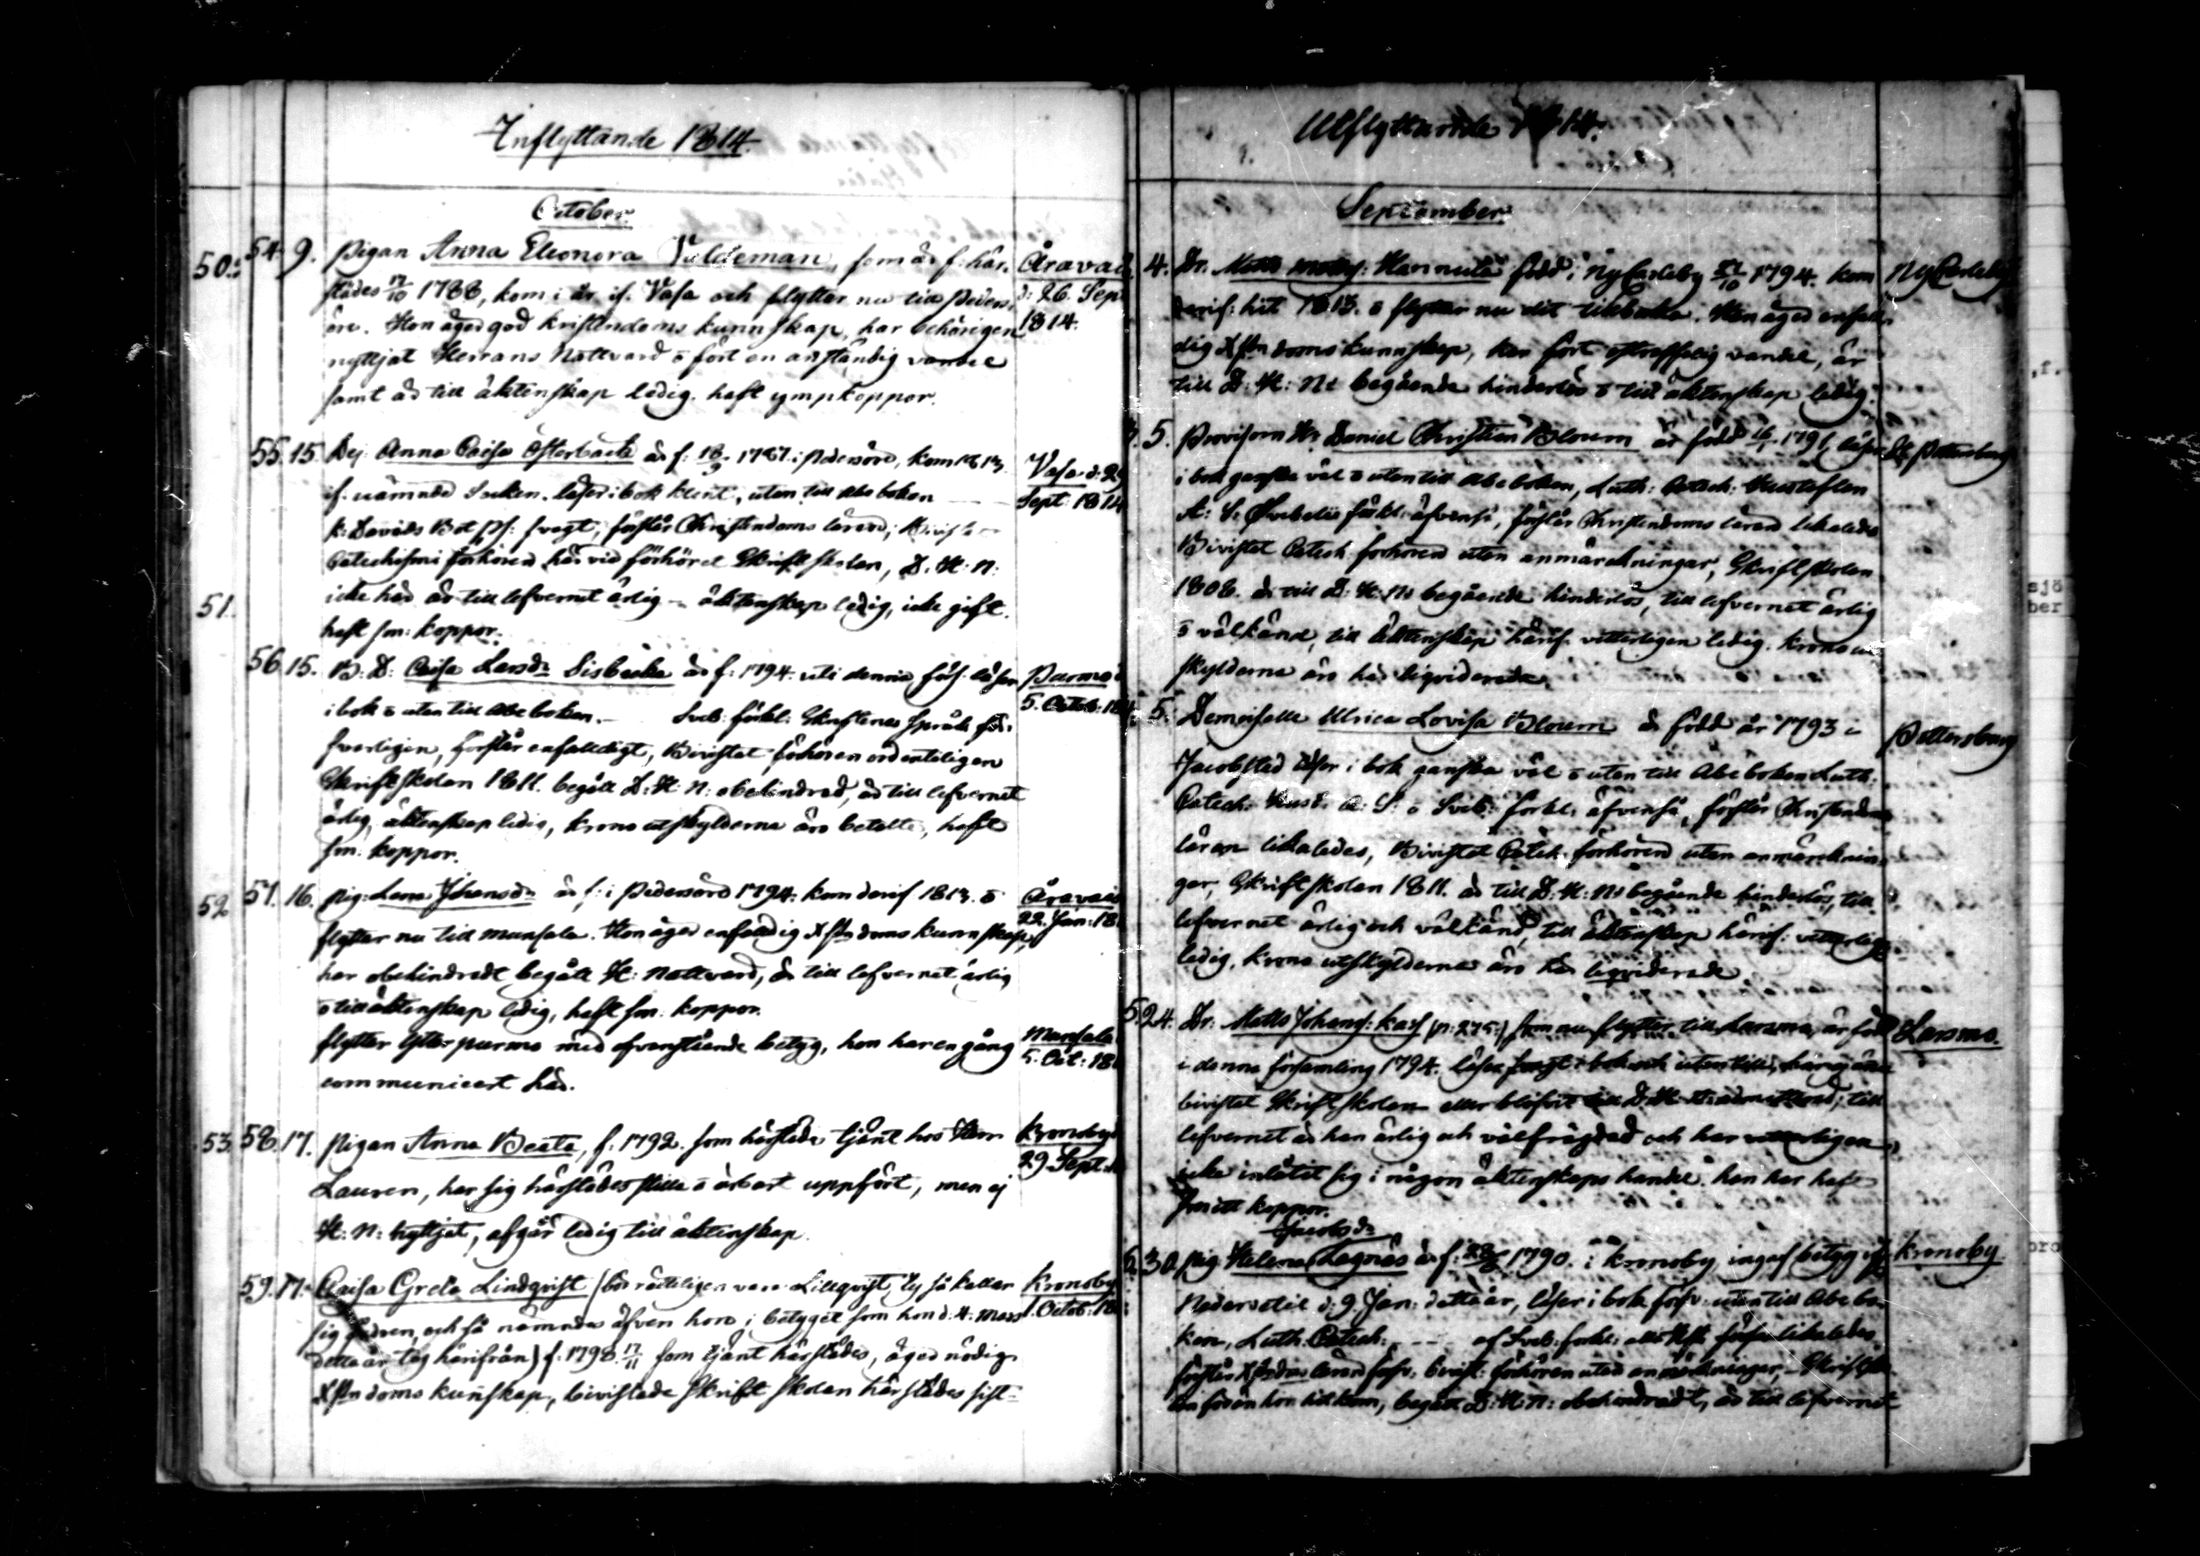 Inflyttande 1814.
October.
50. 54. 9. Pigan Anna Eleonora Valdeman, som är f. här-
städes 17/10 1788, kom i år if. Vasa och flytter nu till Peders-
öre. Hon äger god kristendoms kunnskap, har behörigen
nyttjat Herrans Nattvard o fört en anständig vandel
samt är till äktenskap ledig. haft ympkoppor.
Öravais
d: 26. Sept
1814.
55. 15. Dej. Anna Caisa Österback är f: 18/9 1787 i Pedersöre, kom 1813.
if. nämnde Socken. läser i bok klent, uten till Abc boken
k: Davids Bot ps: svagt, förstår Christendoms läran, Bivista
Catechismi förhören här vid förhöret Skriftskolan, D. H. N:
icke här är till lefvernet ärlig – äktenskap ledig, icke gift.
haft sm: koppor.
Vasa d: 29
Sept 1814
51.
56 15. B: D: Caisa Larsdr Sisbacka är f: 1794. uti denna förs. läser
i bok o uten till Abc boken. – Sveb: förkl: Skriftenes Språk för-
svarligen, förstår enfalldigt, Bivistat förhören ordenteligen
Skriftskolan 1811. begått D: H: N: obehindrad, är till lefvernet
ärlig, äktenskap ledig, krono utskylderna äro betalte, haft
sm. koppor.
Purmo
5. Octob: 18
52 57. 16. Pig: Lena Johansdr är f: i Pedersöre 1794. kom derif 1813. o
flytter nu till Munsala. Hon äger enfaldig Xstndoms kunnskap,
har obehindradt begått H: Nattvard, är till lefvernet ärlig
o till äktenskap ledig, haft sm. koppor.
flytter Ytterpurmo med ofvanstående betyg, hon har en gång
communicert här.
Öravais
22 Jan: 18
Munsala
5. Oct: 18
53. 58. 17. Pigan Anna Beata, f. 1792. som härstädes tjänt hos Herr
Lauren, har sig härstädes stilla o ärbart uppfört, men ej
H: N: nyttjat, afgår ledig till äktenskap.
Kronoby
29 Sept.
59. 17. Caisa Greta Lindqvist (bör rätteligen vara Lillqvist, ty så kallar
sig fadren, och så nämndes äfven hon i betyget som hon d. 4. Mars
detta år tog härifrån) f. 1798. 17/11 som tjänt härstädes, äger nödig
Xstndoms kunskap, bivistade Skriftskolan härstädes sist-
Kronoby
1. Octob: 18
Utflyttande 1814.
September.
4. Dr. Matts Matss: Hannula född i NyCarleby 1794. kom
derif: hit 1813. o flyttar nu dit tillbaka. Han äger enfall-
dig Xstndoms kunskap, har fört ostraffelig vandel, är
till D: H: Nt begående hinderlös o till äktenskap ledig.
NyCarleby
5. Provisorn Hr Daniel Christian Bloum är född 1791, läser
i bok ganska väl o uten till Abc boken, Luth: Catech: Hustaflan
A: S: Svebelii förkl: äfvenså, förstår Christendoms läran likaledes
Bivistat Catech. förhören uten anmärckningar, Skriftskolan
1808. är till D: H: Ns begående hinderlös, till lefvernet ärlig
o välkänd, till äktenskap härif. vitterligen ledig. krono ut-
skylderna äro här liqviderade.
St Pettersburg
5. Demoiselle Ulrica Lovisa Bloum är född år 1793 i
Jacobstad läser i bok ganska väl o uten till Abc boken Luth:
Catech: Hust. A: S: o Sveb: förkl: äfvenså, förstår Christendoms
läran likaledes, Bivistat Catech. förhören uten anmärcknin-
gar, Skriftskolan 1811. är till D: H: Ns begående hinderlös, till
lefvernet ärlig och välkänd, till äktenskap härif: vitterlig
ledig, krono utskylderna äro här liqviderade.
Pettersburg
24. Dr. Matts Johans: Kass (p: 275:) som nu flytter till Larsmo, är född
i denna församling 1794. läser svagt i bok och utentill, har ej än
bivistat Skriftskolan eller blifvit till D: H: N: admitterad; till
lefvernet är han ärlig och välfrägdad och har vitterligen
icke inlåtit sig i någon äktenskaps handel. han har haft
Smitt koppor.
Larsmo.
Jacobsdr
30. Pig Helena Lagnäs är f: 1790. i Kronoby, ingaf betyg if
Nedervetil d: 9. Jan: detta år, läser i bok förv: uten till Abc bo-
ken, Luth: Catech: – – af Sveb: förkl: förstår likaledes
förstår Xstndms läran förv: bivist: förhören utan anmärkningar, Skriftsko-
lan förän hon hit kom, begått D: H: N: obehindradt, är till lefvernet
Kronoby